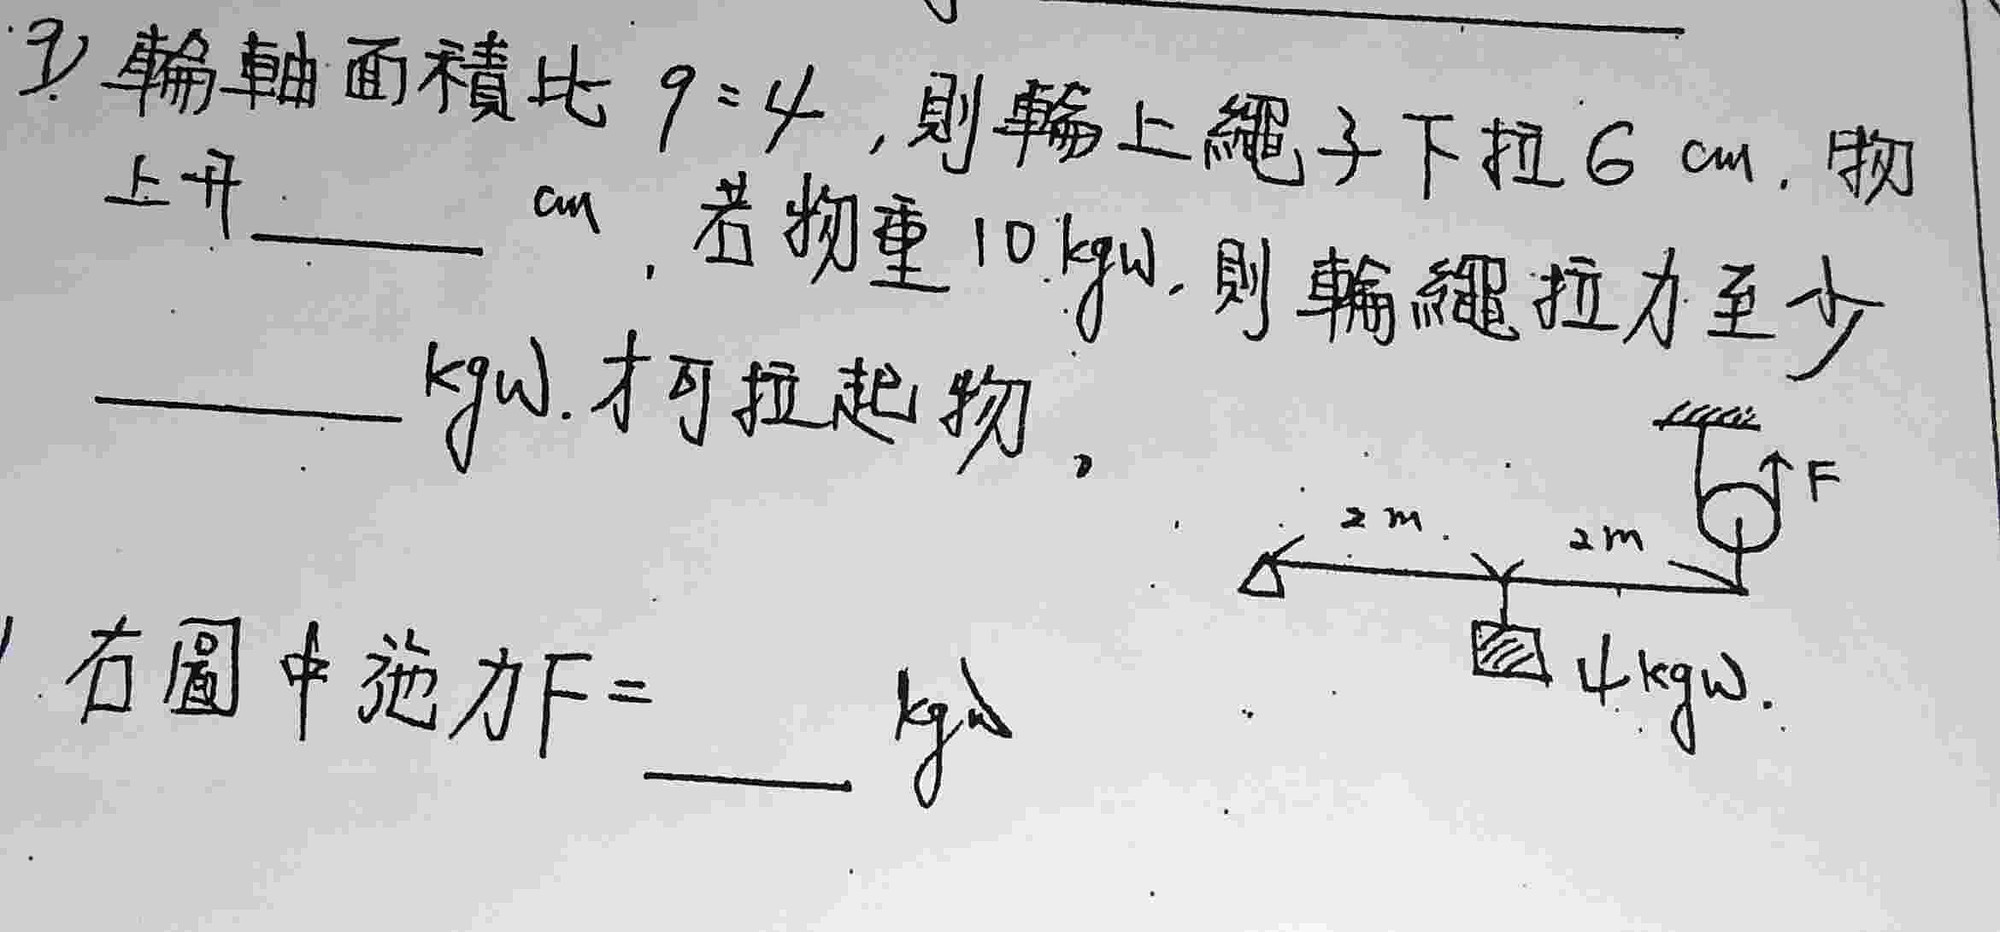 9) 輪軸面積比 9:4,則輪上繩子下拉 6 cm. 物
上升______ cm, 若物重 10 kgw. 則輪繩拉力至少
______ kgw. 才可拉起物。
F
2m
2m
4kgw.
右圖中施力F=______ kgw